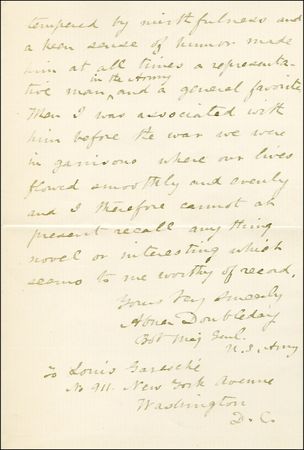 tempered by mirthfulness and
a keen sense of humor made
him at all times a representa-
tive man in the Army and a general favorite
When I was associated with
him before the war we were
in garrisons where our lives
flowed smoothly and evenly
and I therefore cannot at
present recall any thing
novel or interesting which
seems to me worthy of record.
Yours Very Sincerely
Abner Doubleday
Bvt Maj Genl.
U.S. Army
To Louis Garesché
No 911. New York Avenue
Washington
D.C.